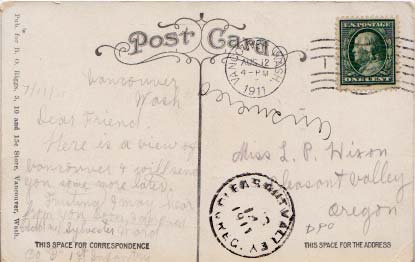 Post Card
Pub. for B. O. Riggs, 5, 10 and 15c Store, Vancouver, Wash.
VANCOUVER, WASH.
AUG 12
4-PM
1911
U.S. POSTAGE
ONE CENT
Vancouver
Wash
Dear Friend
Here is a view of
Vancouver & will send
you some more later.
Trusting I may hear
from you soon
Sylvester Ward
Co 1st Infantry
answered
Miss L. P. Wison
Pleasant Valley
Oregon
PLEASANT VALLEY
OREG.
1911
THIS SPACE FOR CORRESPONDENCE
THIS SPACE FOR THE ADDRESS